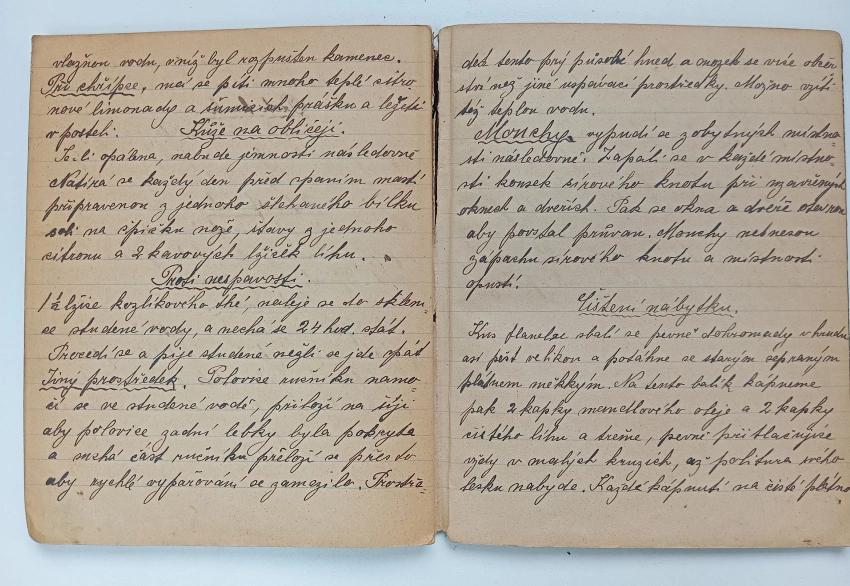 vlažnou vodu, v níž byl rozpuštěn kamenec.
Při chřipce, má se píti mnoho teplé citro-
nové limonady a šumících prášku a ležeti
v posteli. Kůže na obličeji.
Je-li opálena, nabude jemnosti následovně
Natírá se každý den před spaním mastí
připravenou z jednoho šlehaného bílku
soli na špičku nože, šťávy z jednoho
citronu a 2 kavových lžiček líhu.
Proti nespavosti.
1 1/2 lžíce kozlíkového thé, naleje se do skleni-
ce studené vody, a nechá se 24 hod. stát.
Procedí se a pije studené nežli se jde spát
Jiný prostředek. Polovice ručníku namo-
čí se ve studené vodě, přiloží na šíji
aby polovice zadní lebky byla pokryta
a suchá část ručníku přeloží se přes to
aby rychlé vypařování se zamezilo. Prostře-
dek tento prý působí hned a mozek se více obče-
rství než jiné uspávací prostředky. Možno vzíti
též teplou vodu.
Mouchy vypudí se z obytných místno-
stí následovně. Zapálí se v každé místno-
sti kousek sírového knotu při uzavřených
oknech a dveřích. Pak se okna a dvéře otevrou
aby povstal průvan. Mouchy nesnesou
zápachu sírového knotu a místnosti
opustí.
Čištění nábytku.
Kus flanelu sbalí se pevně dohromady v hroudu
asi pěst velikou a potáhne se starým sepraným
plátnem měkkým. Na tento balík kápneme
pak 2 kapky mandlového oleje a 2 kapky
čistého líhu a třeme, pevně přitlačujíce
vždy v malých kruzích, až politura svého
lesku nabyde. Každé kápnutí na čisté plátno